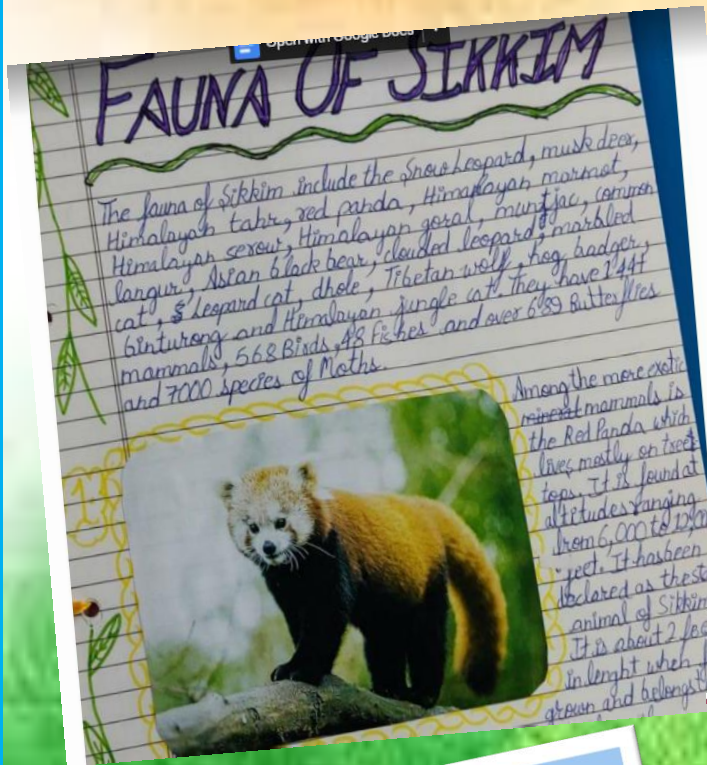 Open with Google Docs
FAUNA OF SIKKIM
The fauna of Sikkim include the Snow Leopard, musk deer,
Himalayan tahr, red panda, Himalayan marmot,
Himalayan serow, Himalayan goral, muntjac, common
langur, Asian black bear, clouded leopard, marbled
cat, Leopard cat, dhole, Tibetan wolf, hog badger,
binturong and Himalayan jungle cat. they have 144+
mammals, 568 Birds, 48 Fishes and over 689 Butterflies
and 7000 species of Moths.
Among the more exotic
mineral mammals is
the Red Panda which
lives mostly on tree
tops. It is found at
altitudes ranging
from 6,000 to
feet. It has been
declared as the
animal of Sikkim
It is about 2
in lenght when
grown and belongs